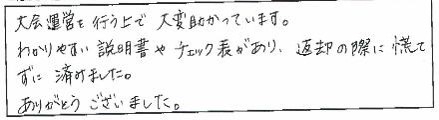 大会運営を行う上で大変助かっています。
わかりやすい説明書やチェック表があり、返却の際に慌て
ずに済みました。
ありがとうございました。